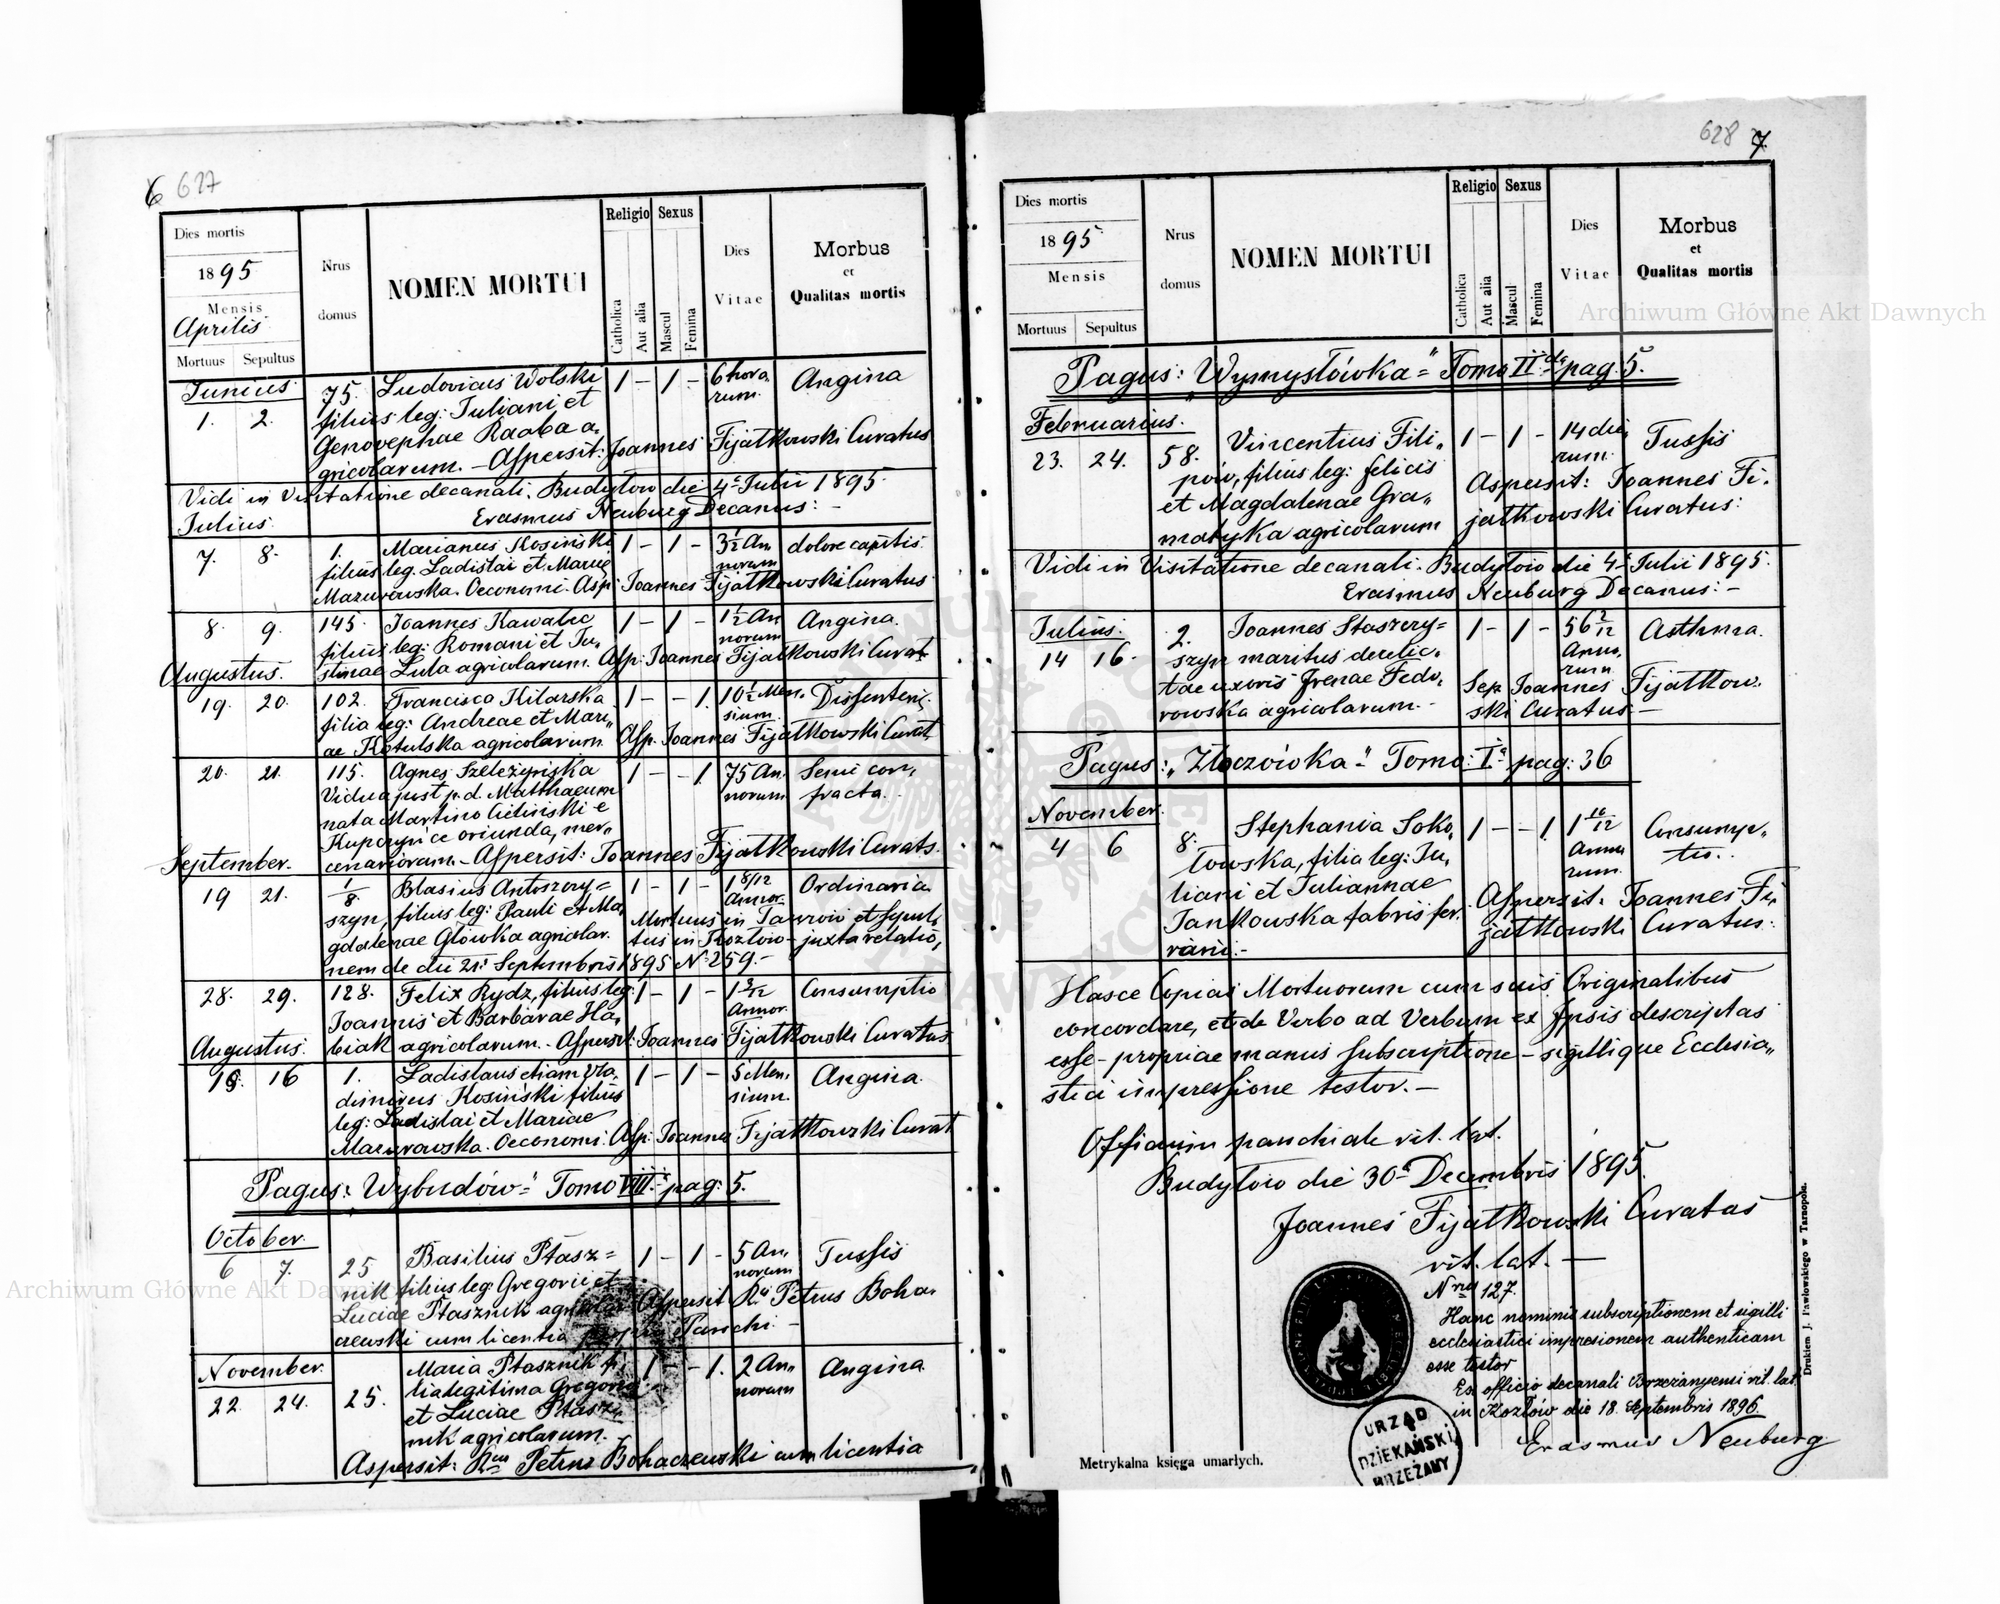 6 627
Dies mortis
1895
Mensis
Aprilis
Mortuus Sepultus
Nrus domus
NOMEN MORTUI
Religio
Catholica
Aut alia
Sexus
Mascul
Femina
Dies Vitae
Morbus
et
Qualitas mortis
Junius
1. 2. 75. Ludovicus Wolski 1 - 1 - 6 hora, Angina
filius leg: Juliani et rum.
Genovephae Raaba a,
gricolarum. - Aspersit: Joannes Fijałkowski Curatus
Vidi in Visitatione decanali. Budyłow die 4e Julii 1895.
Erasmus Neuburg Decanus: -
Julius
7. 8. 1. Marianus Kosiński 1 - 1 - 3½ An, dolore capitis.
filius leg. Ladislai et Mariae norum
Mazurowska. Oeconomi. Asp: Joannes Fijałkowski Curatus
8. 9. 145. Joannes Kawalec 1 - 1 - 1½ An, Angina.
filius leg: Romani et Ju, norum
stinae Lula agricolarum. Asp: Joannes Fijałkowski Curat
Augustus.
19. 20. 102. Francisca Kilarska 1 - - 1. 10½ Men,
filia leg: Andreae et Mari, sium.
ae Kotulska agricolarum. Asp: Joannes Fijałkowski Curat
20. 21. 115. Agnes Szeleżyńska 1 - - 1. 75 An, Senie con,
Vidua post p. d. Matthaeum norum fracta.
nata Martino Cieliński e
Kupczyńce oriunda, mer,
cenariorum. - Aspersit: Joannes Fijałkowski Curats.
September.
19 21. 1/8. Blasius Antoszczy= 1 - 1 - 1 8/12 Ordinaria
szyn, filius leg: Pauli et Ma, Annor.
gdalenae Główka agricolar. Mortuus in Taurów et sepul,
tus in Kozłow - juxta relatio,
nem de die 21. Septembris 1895 N: 259. -
28. 29. 128. Felix Rydz, filius leg: 1 - 1 - 1 3/12 Consumptio
Joannis et Barbarae Ha, Annor.
biak agricolarum. - Aspersit: Joannes Fijałkowski Curatus
Augustus.
15. 16 1. Ladislaus etiam Vla, 1 - 1 - 5 Men, Angina.
dimirus Kosiński filius sium.
leg: Ladislai et Mariae
Mazurowska. Oeconomi. Asp: Joannes Fijałkowski Curat
Pagus: "Wybudów" Tomo VIII. pag: 5.
October.
6 7. 25 Basilius Ptasz= 1 - 1 - 5 An, Tussis
nik filius leg Gregorii et norum
Luciae Ptasznik Aspersit Rs Petrus Boha,
czewski cum licentia Parochi. -
November.
22. 24. 25. Maria Ptasznik fi, 1 - - 1. 2 An, Angina.
lia legitima Gregorii norum
et Luciae Ptasz,
nik agricolarum.
Aspersit: Rus Petrus Bohaczewski cum licentia
628 7
Dies mortis
1895
Mensis
Mortuus Sepultus
Nrus domus
NOMEN MORTUI
Religio
Catholica
Aut alia
Sexus
Mascul
Femina
Dies Vitae
Morbus
et
Qualitas mortis
Pagus: "Wymysłówka" Tomo II do pag: 5.
Februarius.
23. 24. 58. Vincentius Fili, 1 - 1 - 14 die, Tussis
pów, filius leg: Felicis rum.
et Magdalenae Gra, Aspersit: Joannes Fi,
matyka agricolarum jałkowski Curatus:
Vidi in Visitatione decanali. Budyłow die 4 Julii 1895.
Erasmus Neuburg Decanus: -
Julius.
14 16. 2. Joannes Staszczy= 1 - 1 - 56 2/12 Asthma.
szyn maritus derelic, Anno,
tae uxoris Irenae Fedo, rum
rowska agricolarum. - Sep Joannes Fijałkow,
ski Curatus -
Pagus: "Złoczówka" Tomo: I pag: 36
November.
4 6 8. Stephania Soko, 1 - - 1. 1 10/12 Consump,
łowska, filia leg: Ju, Anno, tio.
liani et Juliannae rum.
Jankowska fabris fer, Aspersit: Joannes Fi,
rarii. - jałkowski Curatus:
Hasce Copias Mortuorum cum suis Originalibus
concordare, et de Verbo ad Verbum ex Ipsis descriptas
esse - propriae manus subscriptione - sigillique Ecclesia,
stici impressione testor. -
Officium parochiale rit. lat.
Budyłow die 30 Decembris 1895.
Joannes Fijałkowski Curatus
rit. lat. -
Nrus 127.
Hanc nominis subscriptionem et sigilli
ecclesiastici impressionem authenticam
esse testor
Ex officio decanali Brzezanyensi rit. lat.
in Kozłów die 18. Septembris 1896.
Erasmus Neuburg
URZĄD
DZIEKAŃSKI
BRZEŻANY
Metrykalna księga umarłych.
Drukiem J. Pawłowskiego w Tarnopolu.
Archiwum Główne Akt Dawnych
Archiwum Główne Akt Dawnych